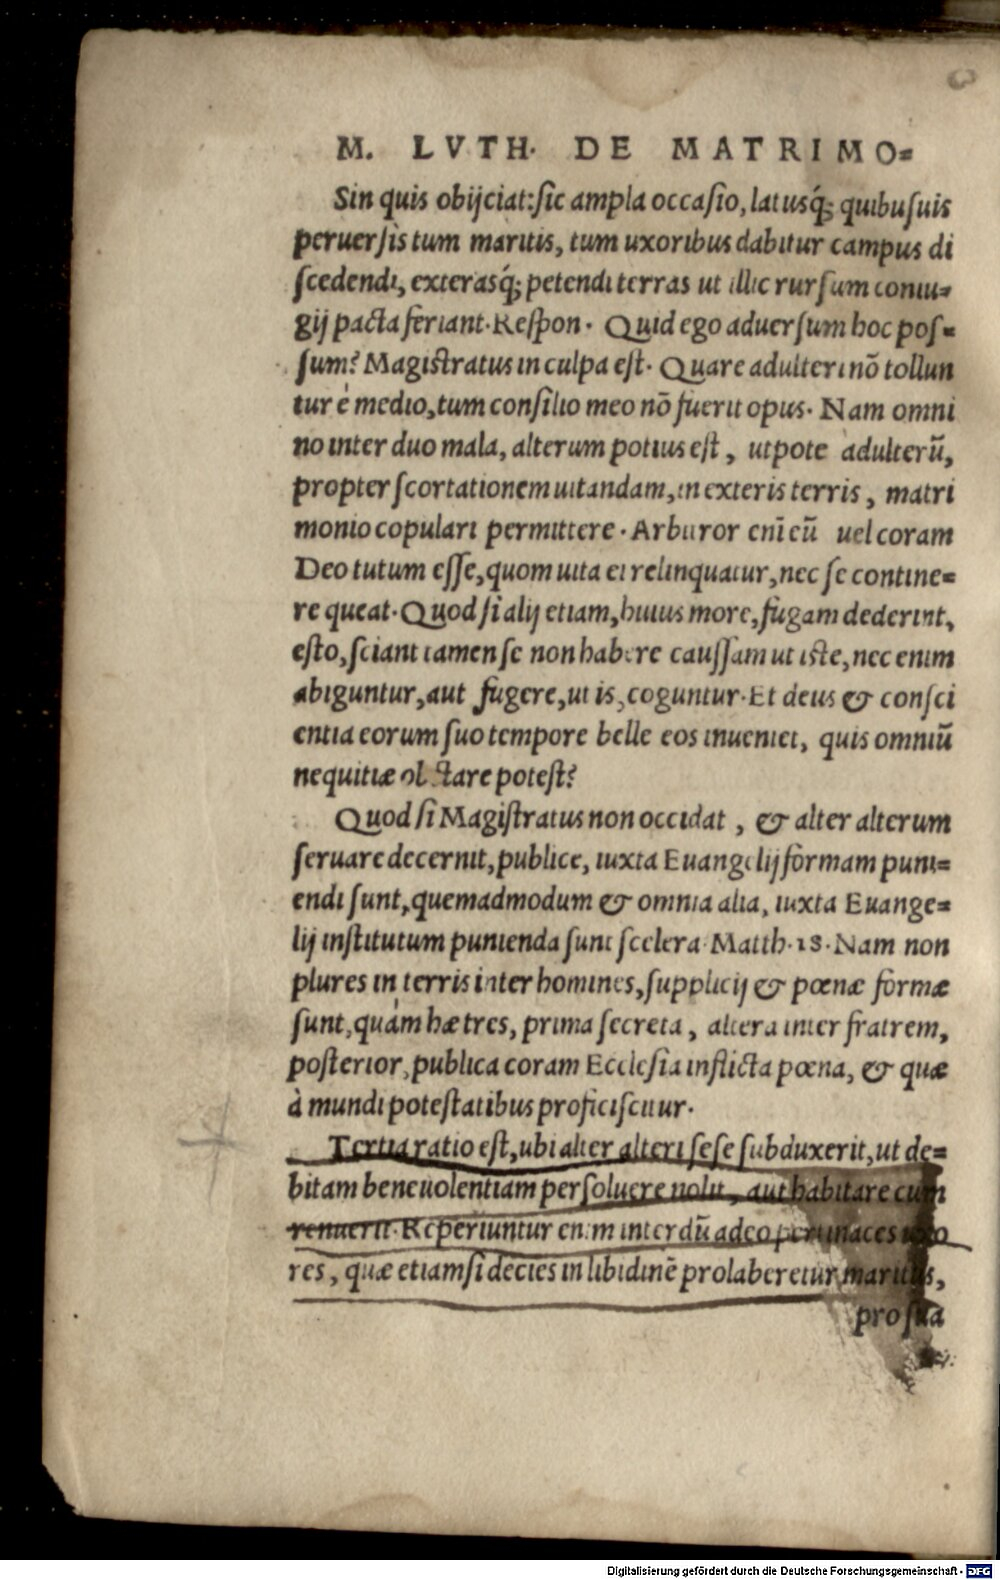 M. LVTH. DE MATRIMO=
Sin quis obijciat: sic ampla occasio, latusq́; quibusuis
peruersis tum maritis, tum uxoribus dabitur campus di
scedendi, exterasq́; petendi terras ut illic rursum coniu=
gij pacta feriant. Respon. Quid ego aduersum hoc pos=
sum? Magistratus in culpa est. Quare adulteri nõ tollun
tur è medio, tum consilio meo nõ fuerit opus. Nam omni
no inter duo mala, alterum potius est, utpote adulterũ,
propter scortationem uitandam, in exteris terris, matri
monio copulari permittere. Arbitror enĩ eũ uel coram
Deo tutum esse, quom uita ei relinquatur, nec se contine=
re queat. Quod si alij etiam, huius more, fugam dederint,
esto, sciant tamen se non habere caussam ut iste, nec enim
abiguntur, aut fugere, ut is, coguntur. Et deus & consci
entia eorum suo tempore belle eos inueniet, quis omniũ
nequitiæ potest?
Quod si Magistratus non occidat, & alter alterum
seruare decernit, publice, iuxta Euangelij formam puni=
endi sunt, quemadmodum & omnia alia, iuxta Euange=
lij institutum punienda sunt scelera Matth. 18. Nam non
plures in terris inter homines, supplicij & pœnæ formæ
sunt, quàm hæ tres, prima secreta, altera inter fratrem,
posterior, publica coram Ecclesia inflicta pœna, & quæ
à mundi potestatibus proficiscitur.
Tertia ratio est, ubi alter alteri sese subduxerit, ut de=
bitam beneuolentiam persoluere nolit, aut habitare cum
renuerit. Reperiuntur enim interdũ adeo pertinaces uxo
res, quæ etiamsi decies in libidinẽ prolaberetur maritus,
pro sua
Digitalisierung gefördert durch die Deutsche Forschungsgemeinschaft - DFG